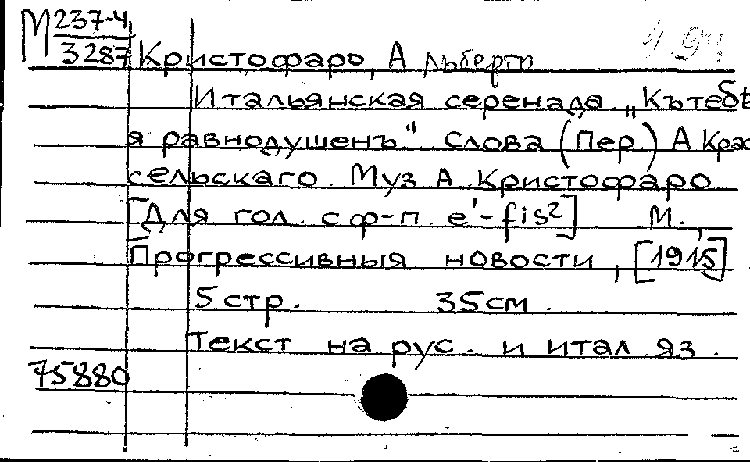 М 237-4
3287
Кристофаро, Альберто
Итальянская серенада „Къ тебѣ
я равнодушенъ" Слова (Пер) А Крас
сельскаго Муз А Кристофаро
[Для гол. с ф-п e'-fis²] М.,
Прогрессивныя новости, [1915]
5 стр. 35 см
Текст на рус. и итал яз.
75880